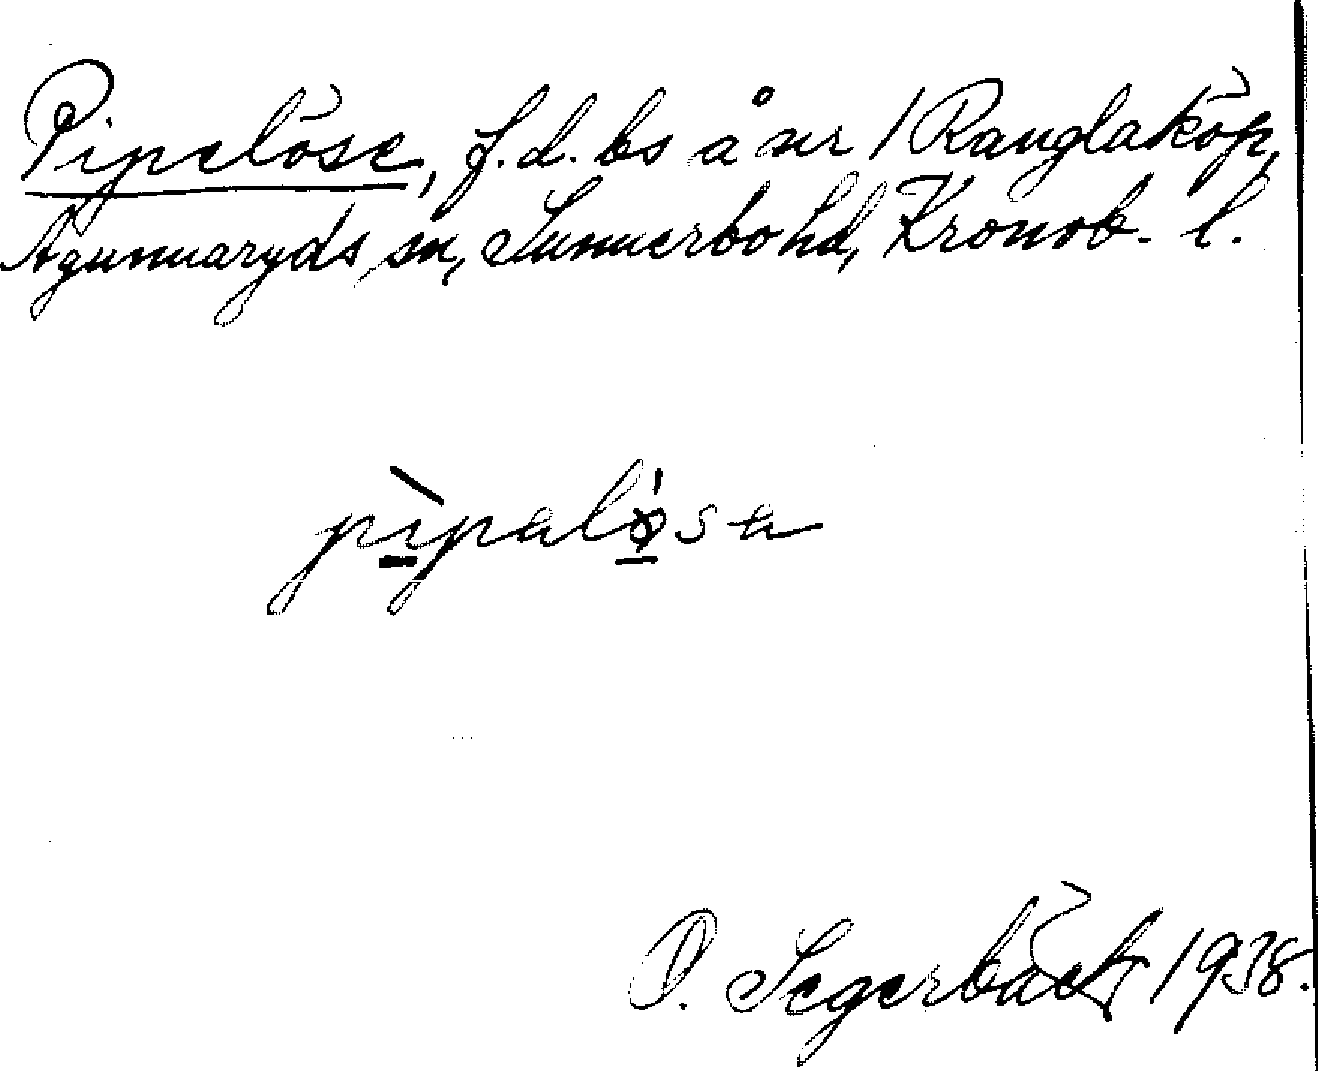 Pipelöse, f.d. bs å nr 1 Ranglaköp,
Agunnaryds sn, Sunnerbo hd, Kronob. l.
pìpalǿsa
O. Segerbäck 1938.